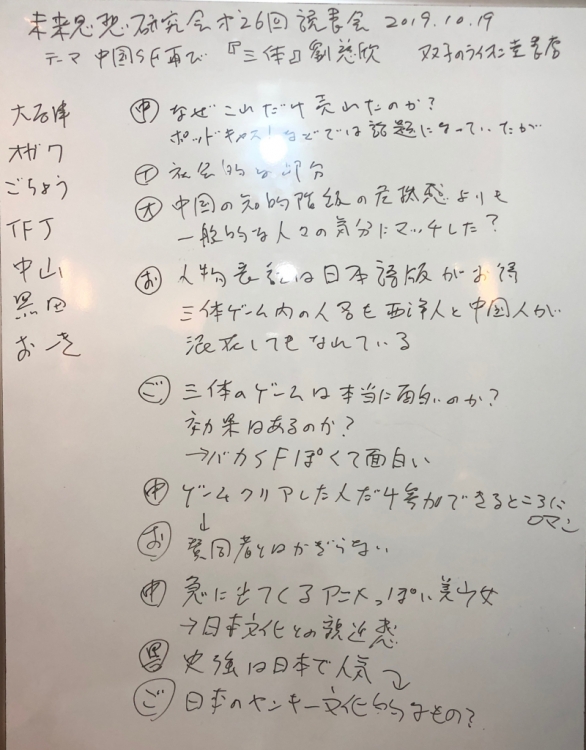 未来思想研究会第26回読書会 2019.10.19
テーマ 中国SF再び 『三体』劉慈欣 双子のライオン堂書店
大石津
オガワ
ごちょう
TFJ
中山
黒田
おーき
中 なぜこれだけ売れたのか?
ポッドキャストなどでは話題になっていたが
イ 社会的な部分
大 中国の知的階級の危機感よりも
一般的な人々の気分にマッチした?
お 人物表記は日本語版がお得
三体ゲーム内の人名も西洋人と中国人が
混在してもなれている
ご 三体のゲームは本当に面白いのか?
効果はあるのか?
→バカSFぽくて面白い
中 ゲームクリアした人だけ参加できるところに
ロマン
↓
お 賛同者とはかぎらない
中 急に出てくるアニメっぽい美少女
→日本文化との親近感
黒 史強は日本で人気
ご 日本のヤンキー文化的なもの?